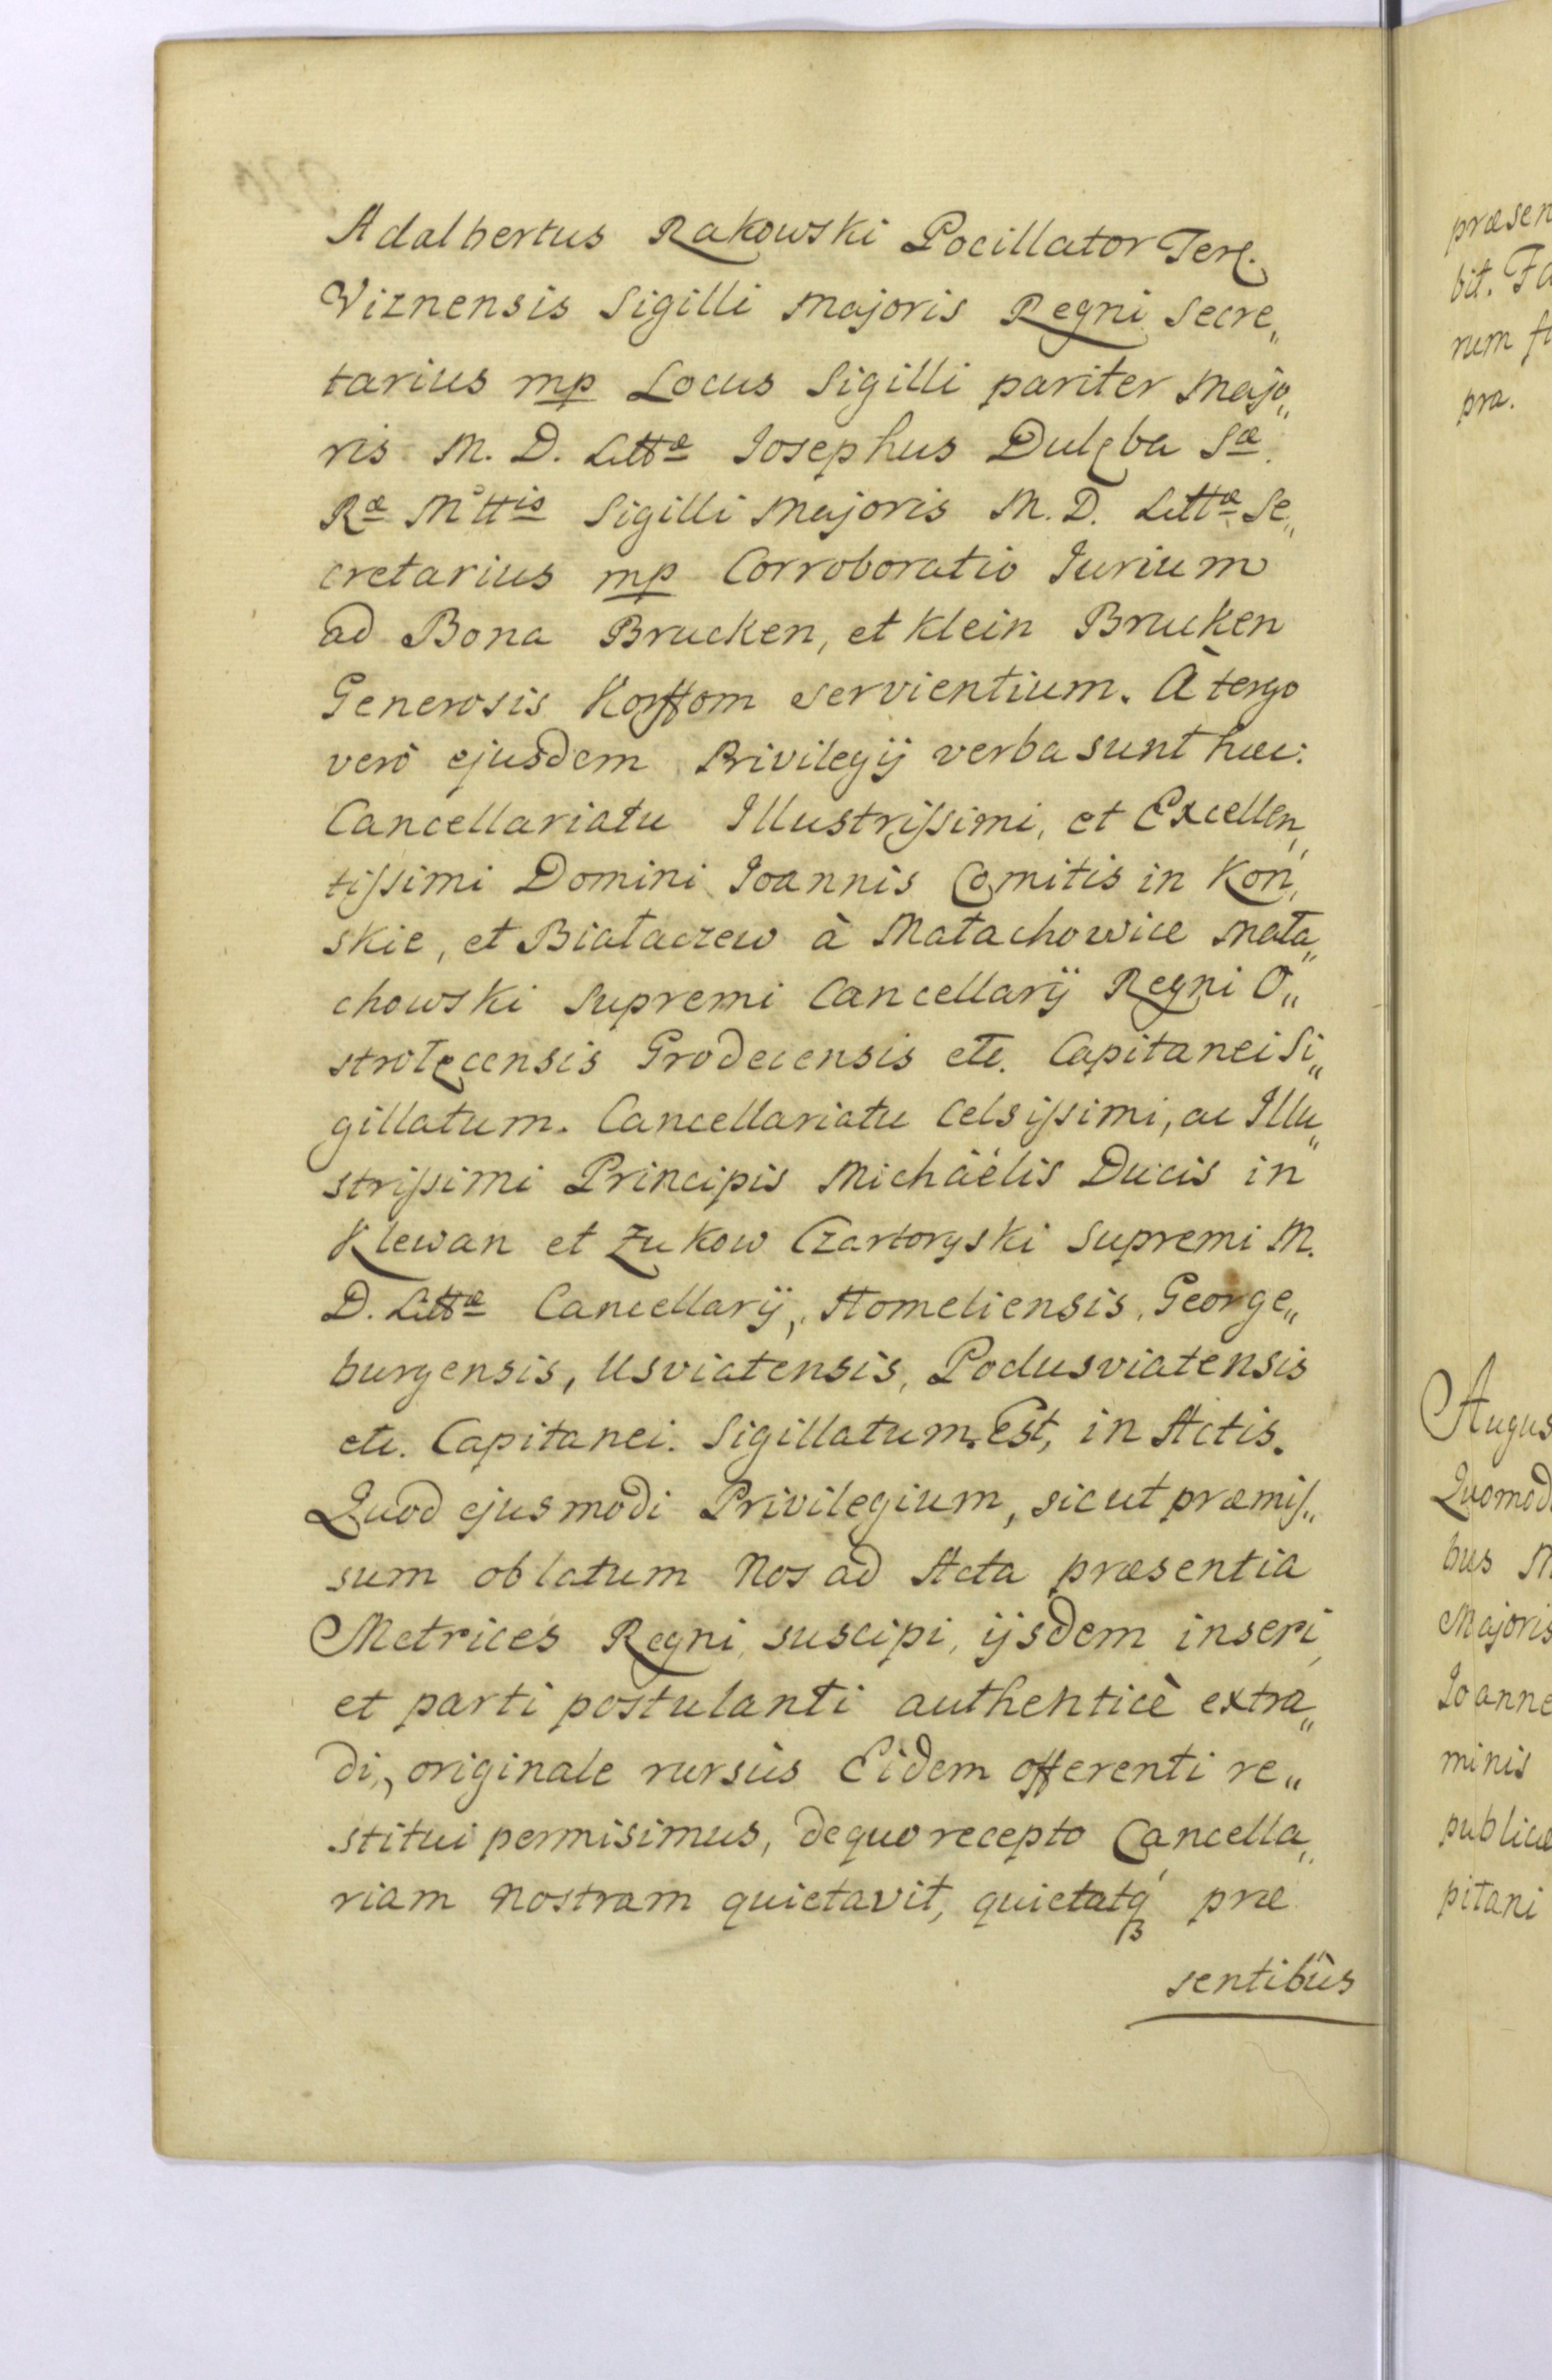 Adalbertus Rakowski Pocillator Terę.
Viznensis Sigilli Majoris Regni Secre„
tarius mp Locus Sigilli pariter Majo„
ris M. D. Littæ Josephus Dulęba Sæ.
Ræ Mttis Sigilli Majoris M. D. Littæ Se„
cretarius mp Corroboratio Jurium
ad Bona Brucken, et Klein Brucken
Generosis Korffom servientium. À tergo
verò ejusdem Privilegij verba sunt hæc:
Cancellariatu Illustrissimi, et Excellen„
tissimi Domini Joannis Comitis in Koń„
skie, et Białaczew à Małachowice Mała„
chowski Supremi Cancellarij Regni O„
strołęcensis Grodecensis etc. Capitanei Si„
gillatum. Cancellariatu Celsissimi, ac Illu„
strissimi Principis Michäelis Ducis in
Klewan et Żukow Czartoryski Supremi M.
D. Littæ Cancellarij, Homeliensis, George„
burgensis, Usviatensis, Podusviatensis
etc. Capitanei. Sigillatum. Est, in Actis.
Quod ejusmodi Privilegium, sicut præmis„
sum oblatum Nos ad Acta præsentia
Metrices Regni, suscipi, ijsdem inseri,
et parti postulanti authenticè extra„
di, originale rursùs Eidem offerenti re„
stitui permisimus, de quo recepto Cancella„
riam nostram quietavit, quietatq́ præ
sentibûs
præsen
bit. Fa
rum
pra.
Augus
Quomod
bus M
Majoris
Joanne
minis
publicæ
pitani